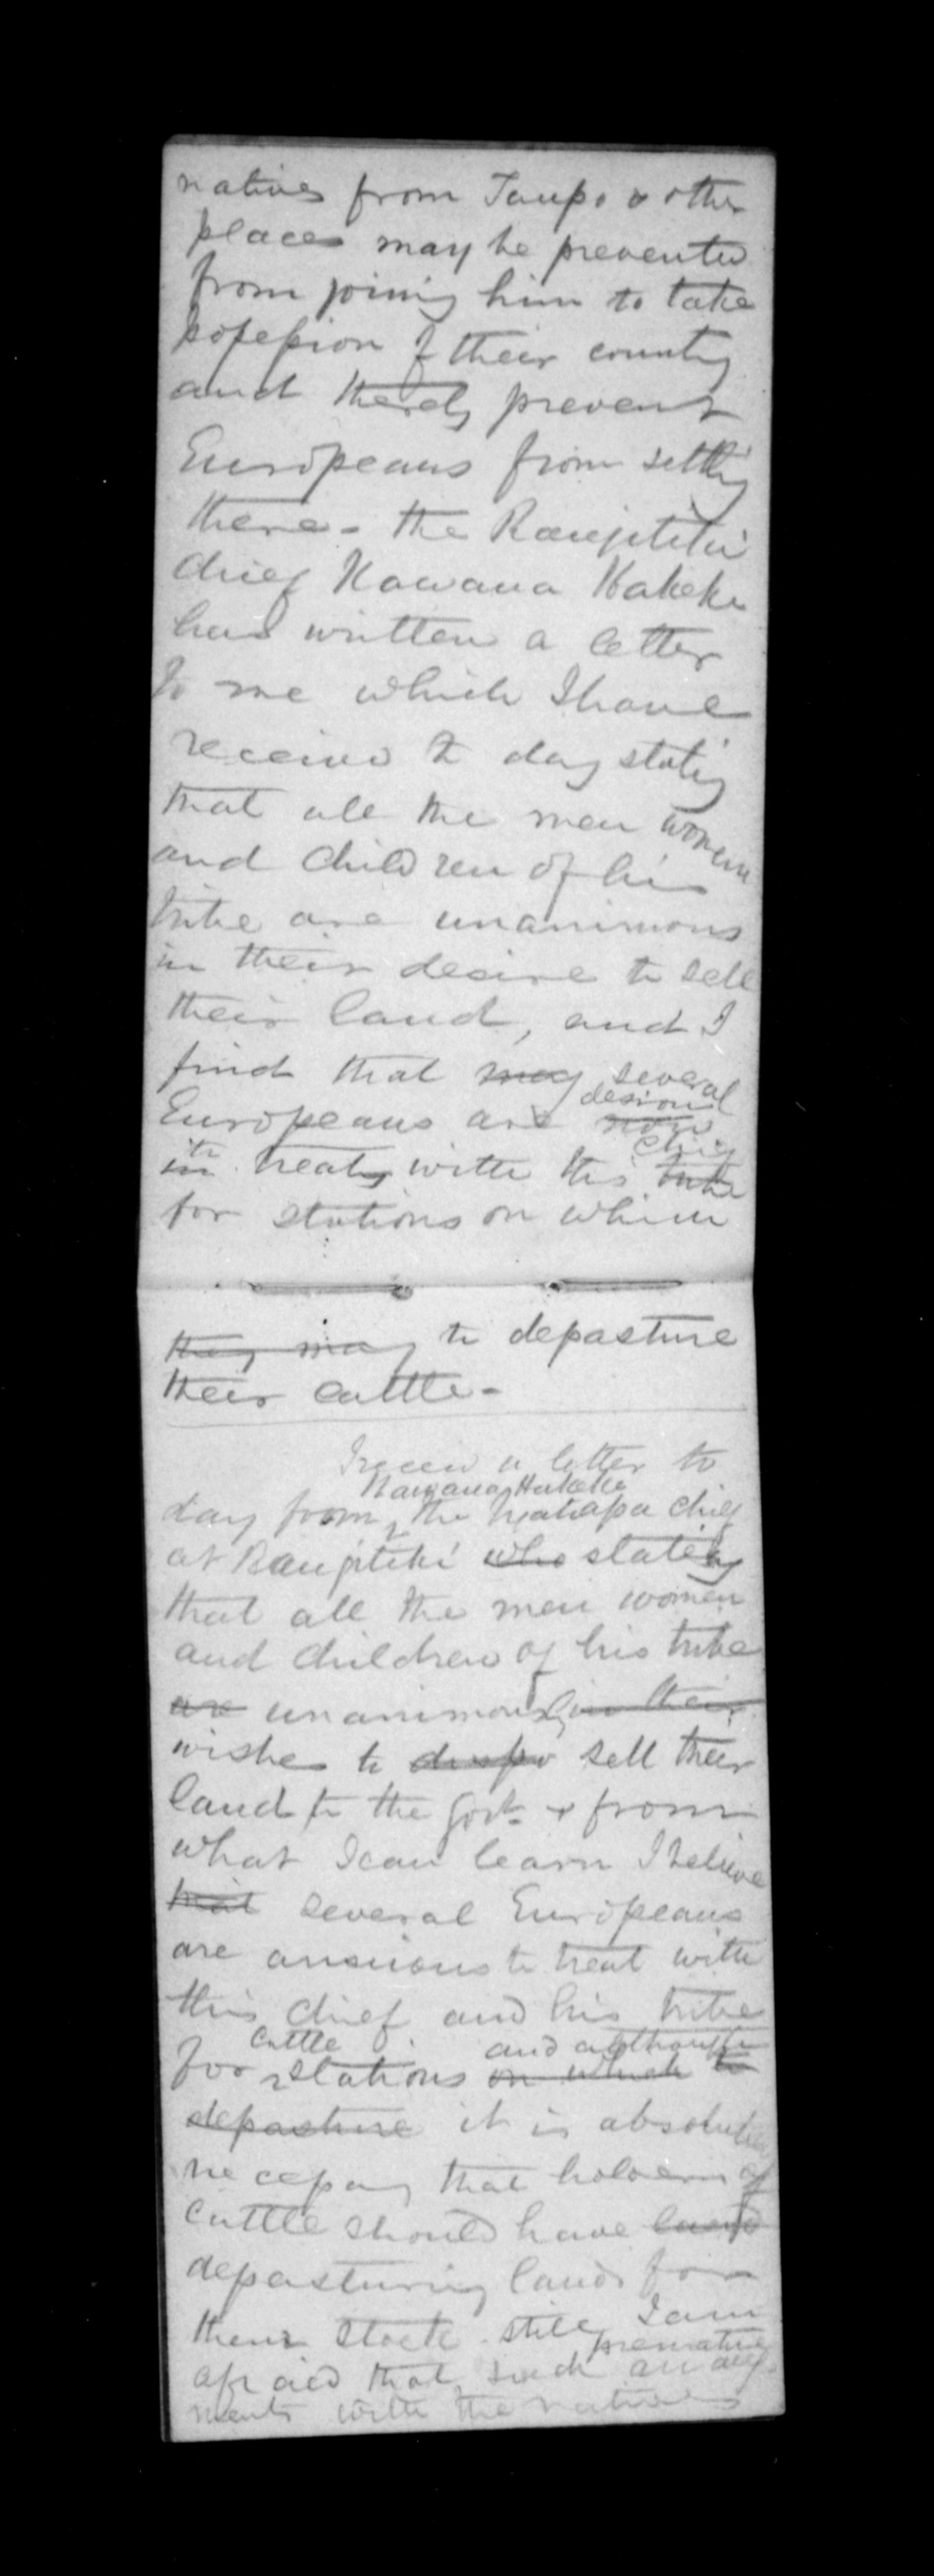 natives from Taupo & other
places may be prevented
from joining him to take
possession of their country
and thereby prevent
Europeans from settling
there - the Rangitikei
chief Kawana Hakeke
has written a letter
to me which I have
received to day stating
that all the men women
and children of his
tribe are unanimous
in their desire to sell
their land, and I
find that may several
desirous
Europeans are now
to chief
in treaty with this tribe
for stations on whim
they may to depasture
their cattle -
I receivd a letter to
Kawana Hakeke
day from the Ngatiapa chief
at Rangitiki who stating
that all the men women
and children of his tribe
are unanimously in their
wishes to dispo sell their
land to the Govt. & from
what I can learn I believe
that several Europeans
are anxious to treat with
this chief and his tribe
cattle and although
for stations on which to
depasture it is absolutely
necessary that holders of
cattle should have land
depasturing lands for
their stock still I am
premature
afraid that such arrange
ments with the natives